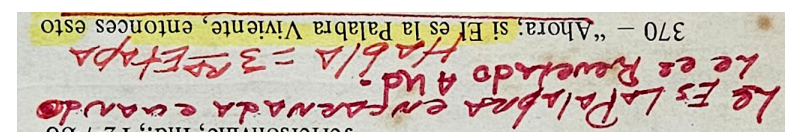 Jeffersonville, Ind.,
LE ES LA PALABRA encarnada cuando
Le es Revelado A Ud.
Habla = 3RA Etapa
370 – “Ahora; si El es la Palabra Viviente, entonces esto